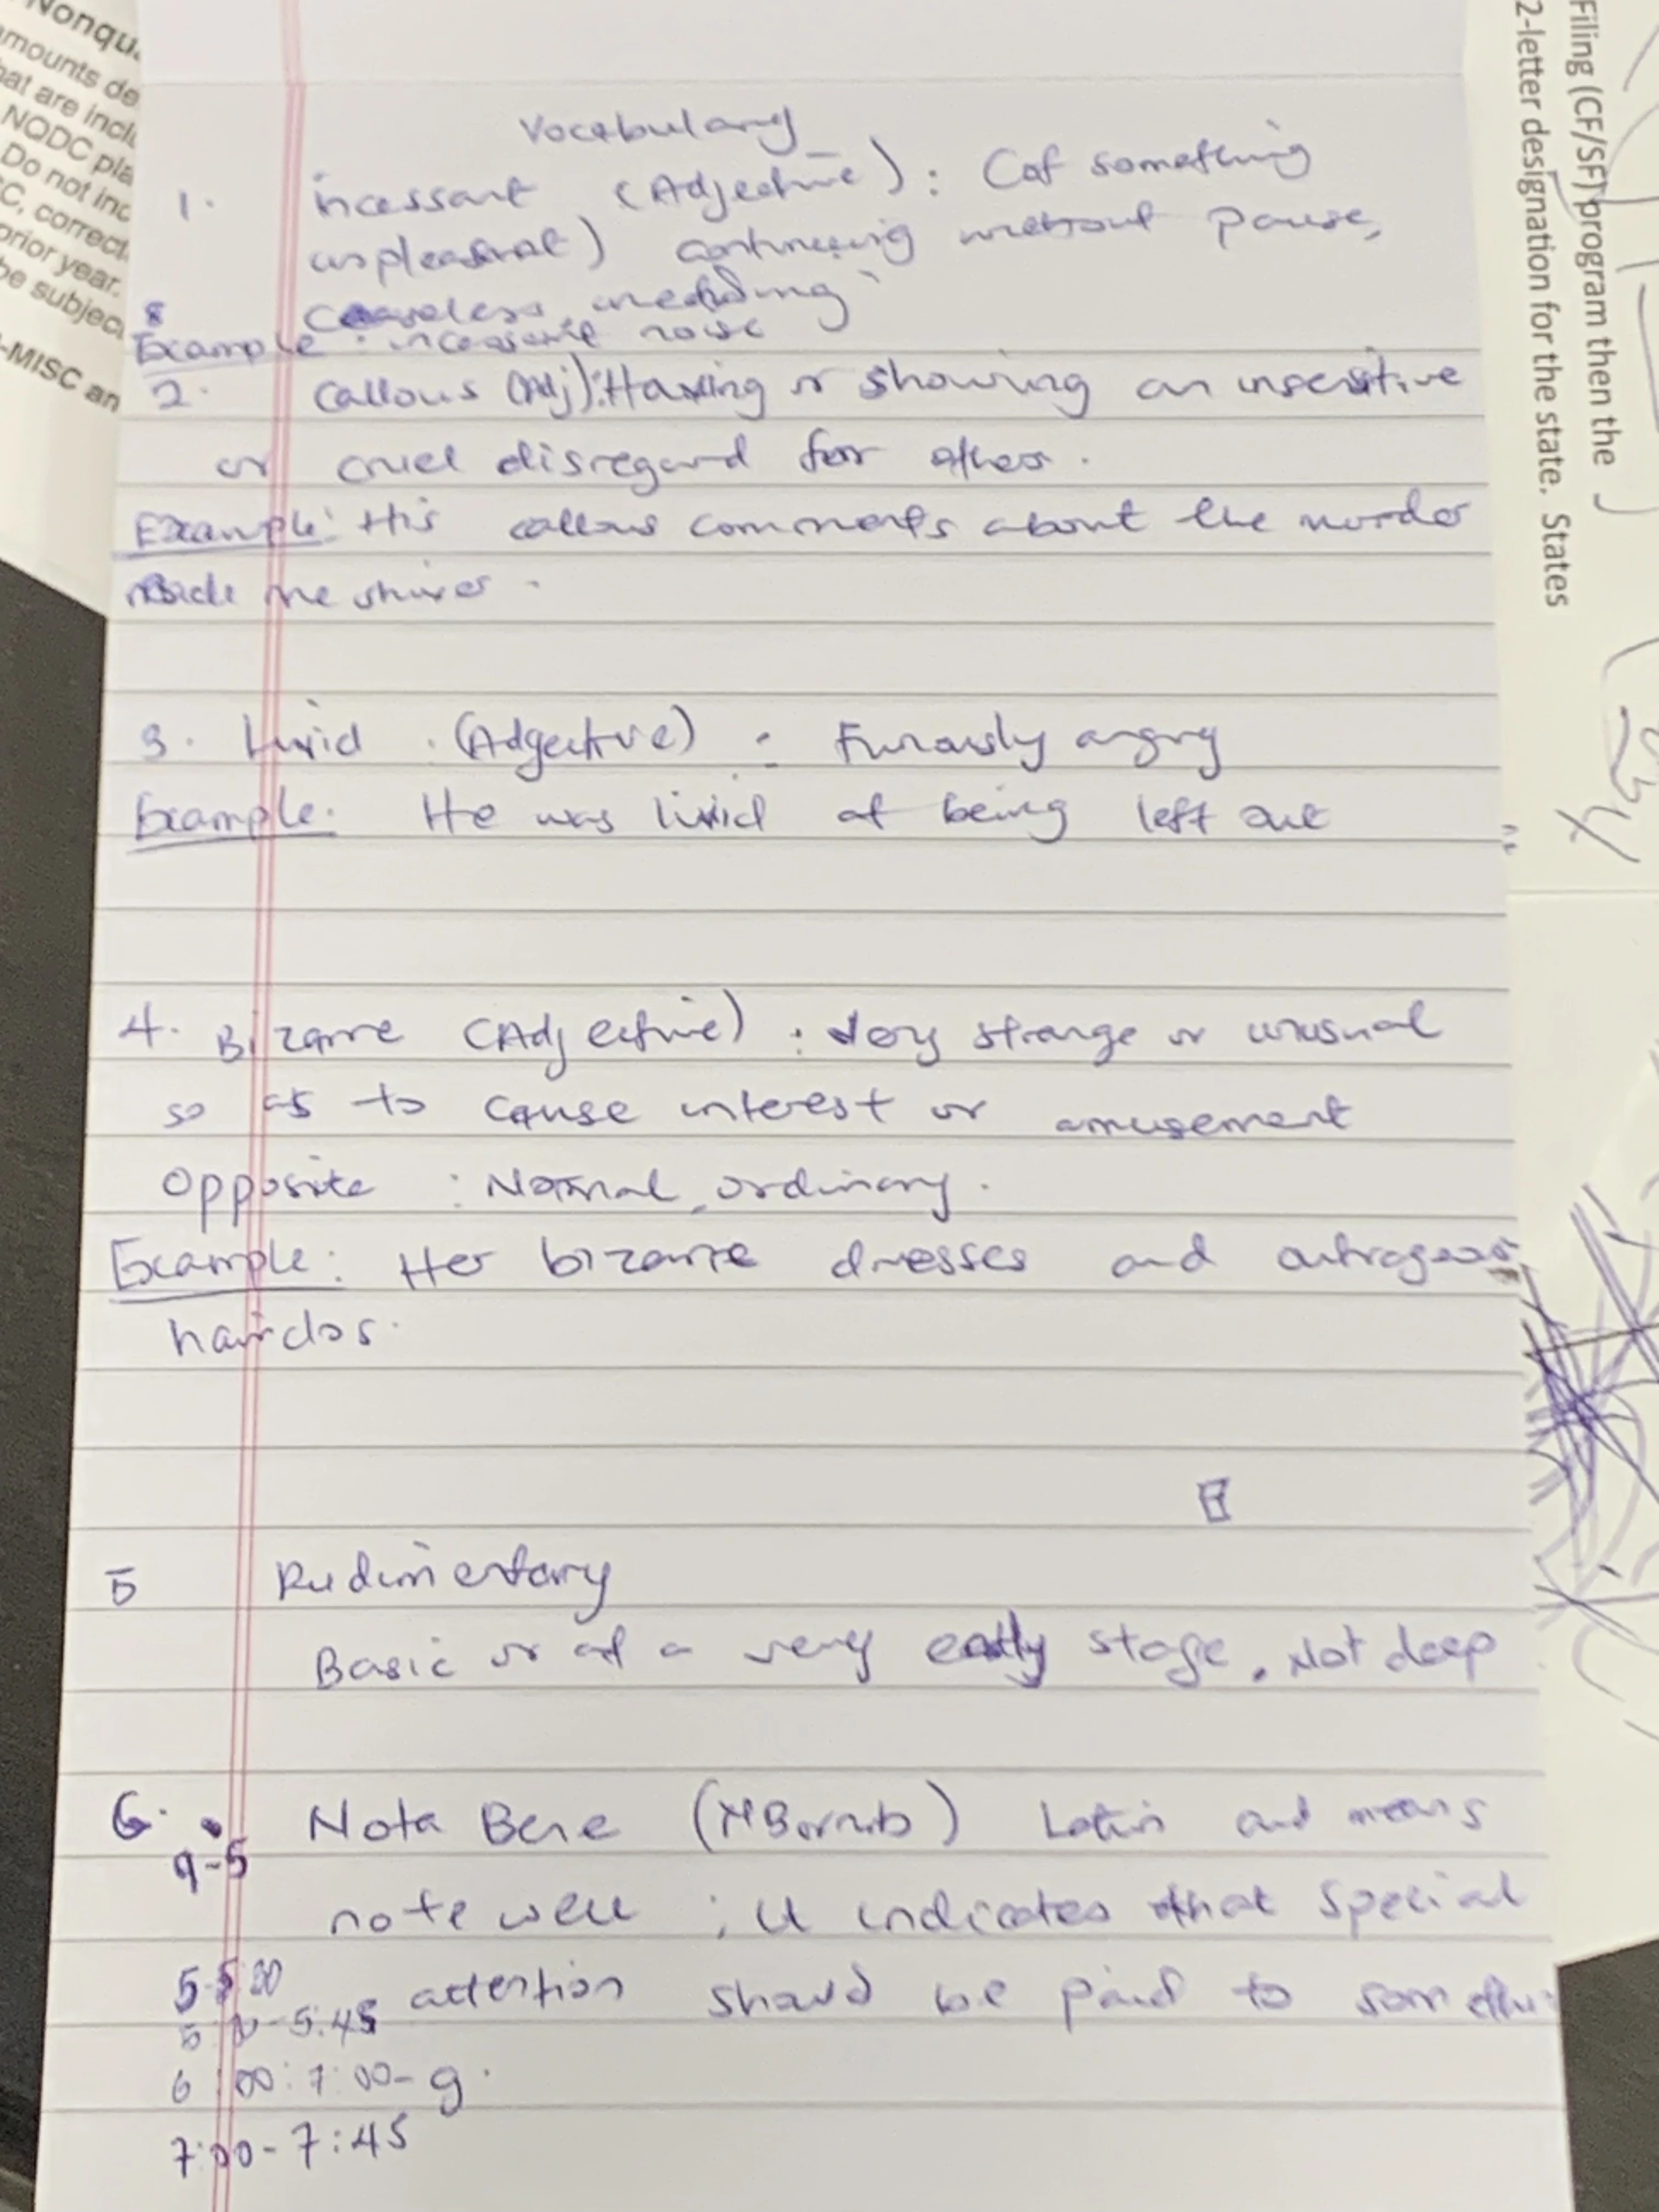 Nonqu
mounts de
hat are incl
NQDC pla
Do not inc
C, correct
prior year.
be subjec
-MISC an
Filing (CF/SF) program then the
2-letter designation for the state. States
Vocabulary
1. incessant (Adjective): (of something
unpleasant) continuing without pause,
ceaseless, unending
Example: incessant noise
2. Callous (Adj): Having or showing an insensitive
or cruel disregard for others.
Example: His callous comments about the murder
made me shiver.
3. Livid (Adjective): Furiously angry
Example: He was livid at being left out
4. Bizarre (Adjective): Very strange or unusual
so as to cause interest or amusement
Opposite: Normal, ordinary.
Example: Her bizarre dresses and outrageous
hairdos.
5 Rudimentary
Basic or at a very early stage. Not deep
6. Nota Bene (NB or nb) Latin and means
9-5
note well; it indicates that special
attention should be paid to somethi
5:45
6:00:7:00-g.
7:00-7:45